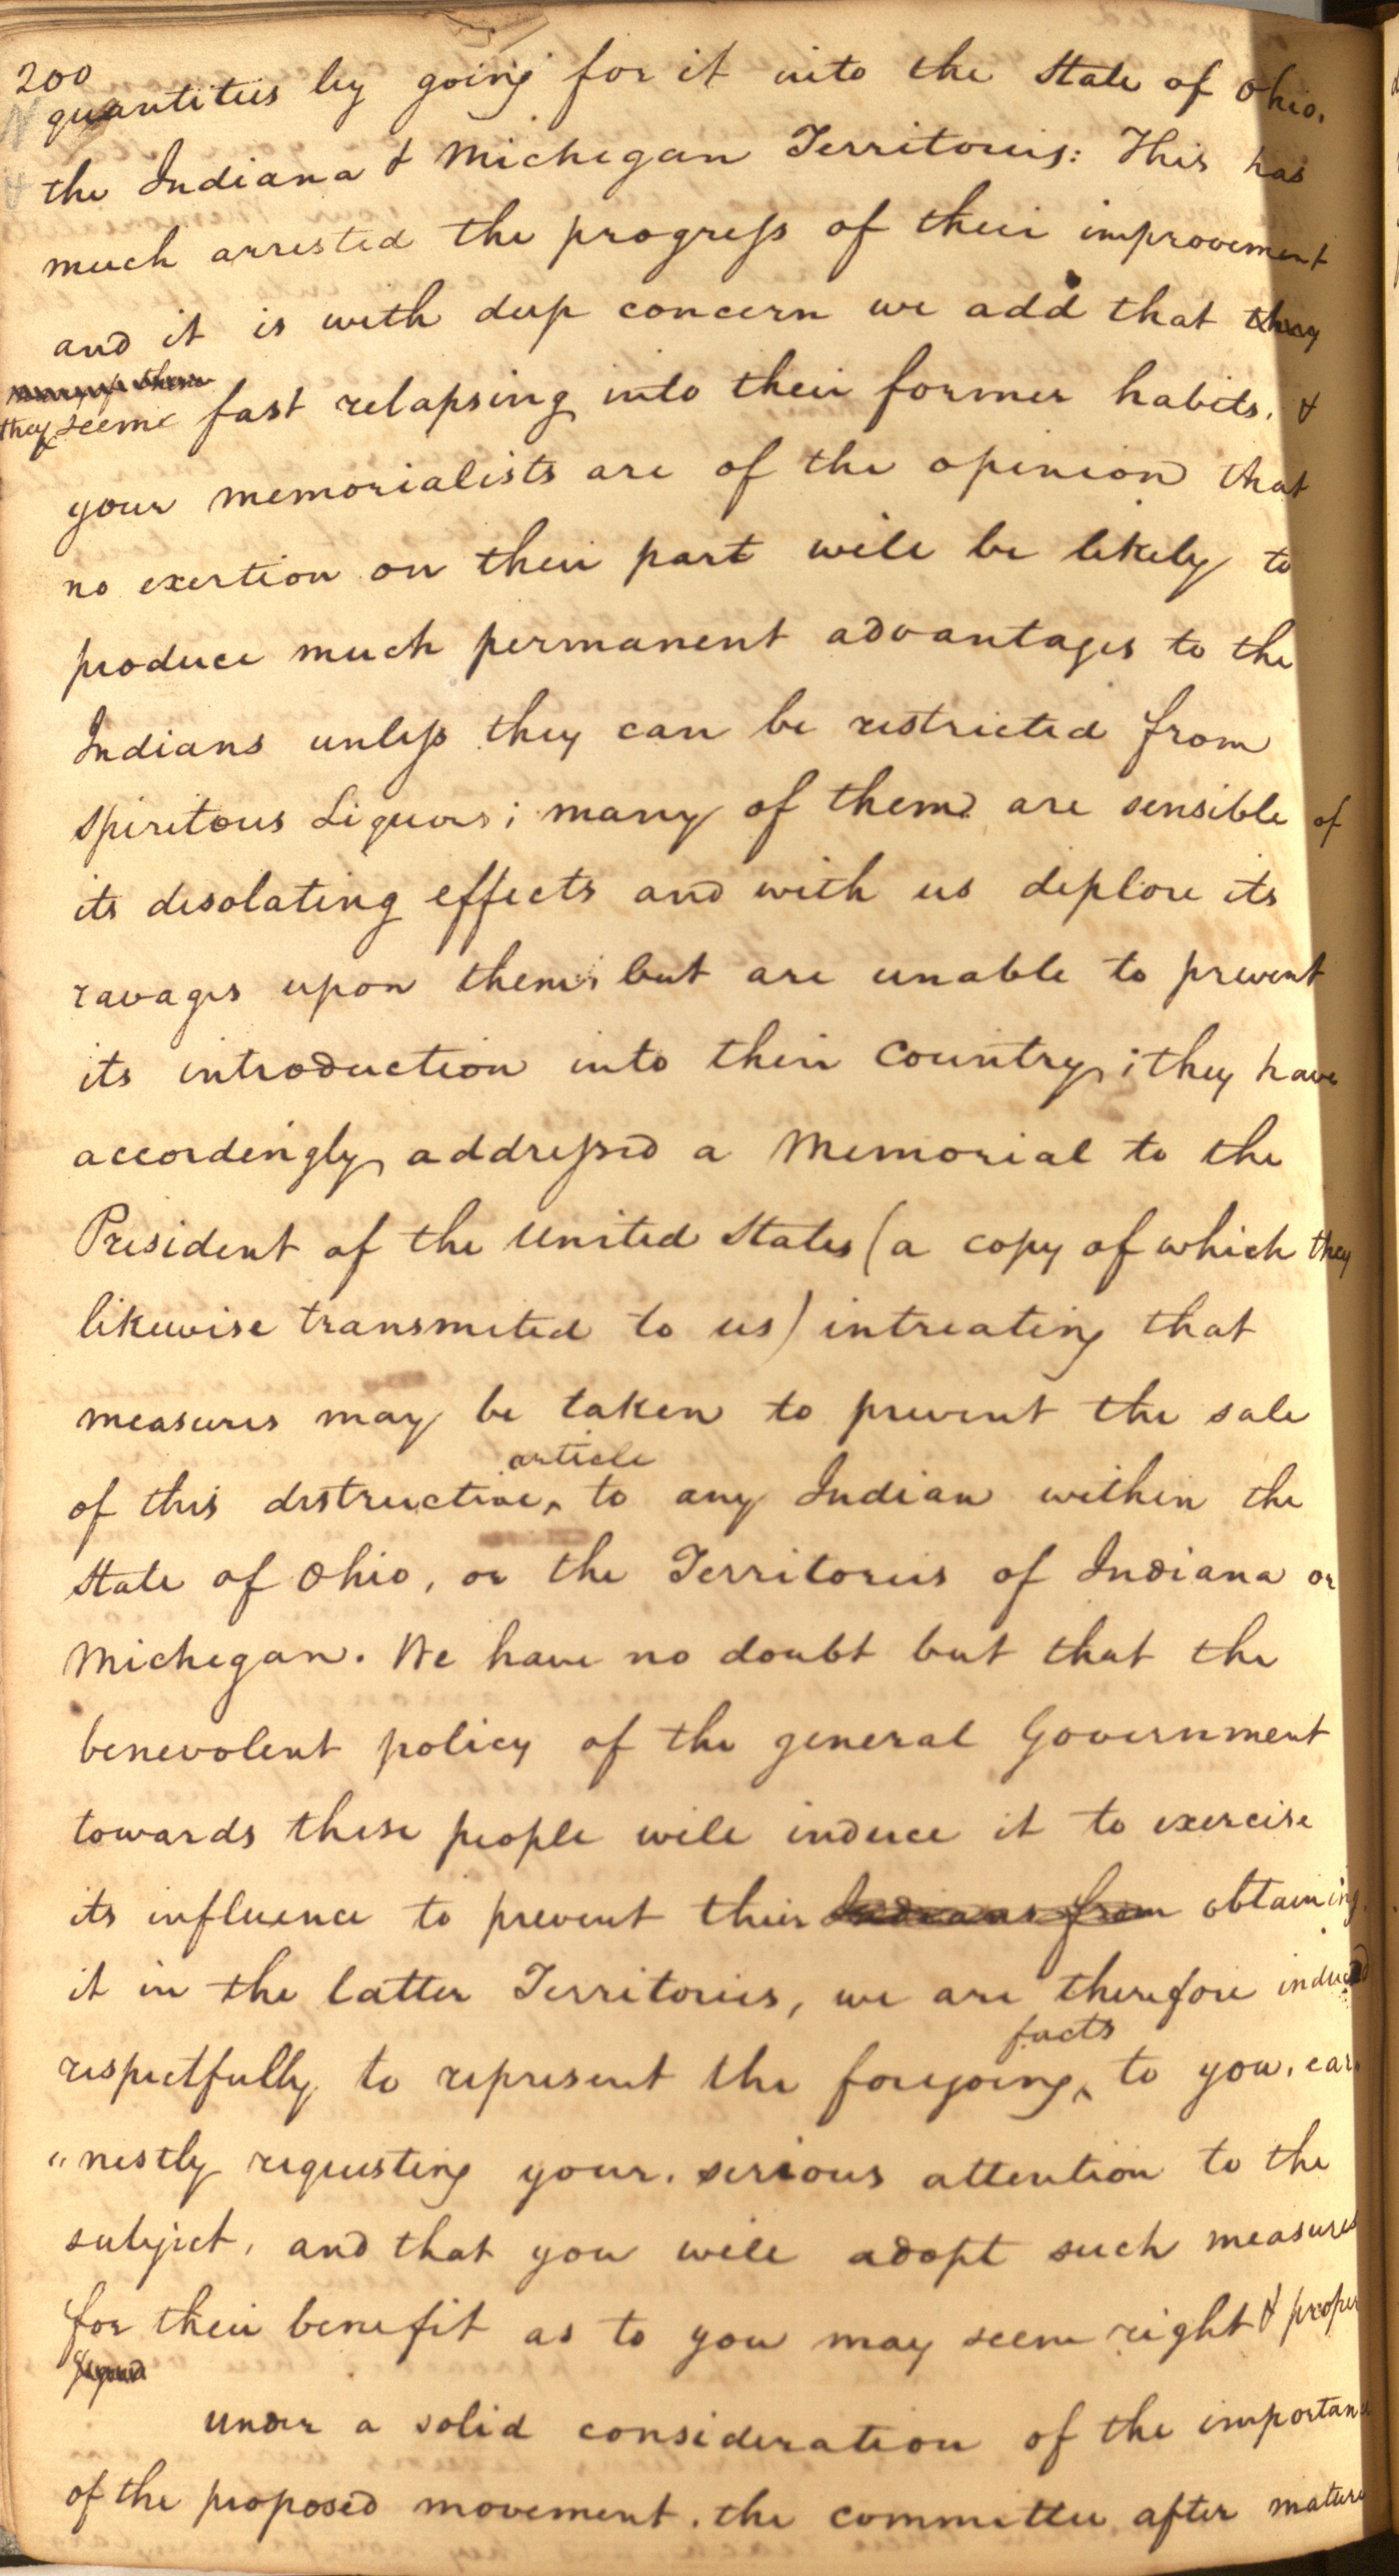 200
quantities by going for it into the State of Ohio.
the Indiana & Michegan Territories: This has
much arrested the progress of their improvement
and it is with deep concern we add that they
they seeme fast relapsing into their former habits. &
your memorialists are of the opinion that
no exertion on their part will be likely to
produce much permanent advantages to the
Indians unless they can be restricted from
spiritous Liquors; many of them are sensible of
its desolating effects and with us deplore its
ravages upon them but are unable to prevent
its introduction into their Country; they have
accordingly addressed a Memorial to the
President of the United States (a copy of which they
likewise transmited to us) intreating that
measures may be taken to prevent the sale
article
of this destructive ‸ to any Indian within the
State of Ohio, or the Territories of Indiana or
Michegan. We have no doubt but that the
benevolent policy of the general Government
towards these people will induce it to exercise
its influence to prevent their Indians from obtaining
it in the latter Territories, we are therefore induced
facts
respectfully to represent the foregoing ‸ to you, ear
"nestly requesting your serious attention to the
subject, and that you will adopt such measures
for their benefit as to you may seem right & proper
under a solid consideration of the importance
of the proposed movement. the committee after mature